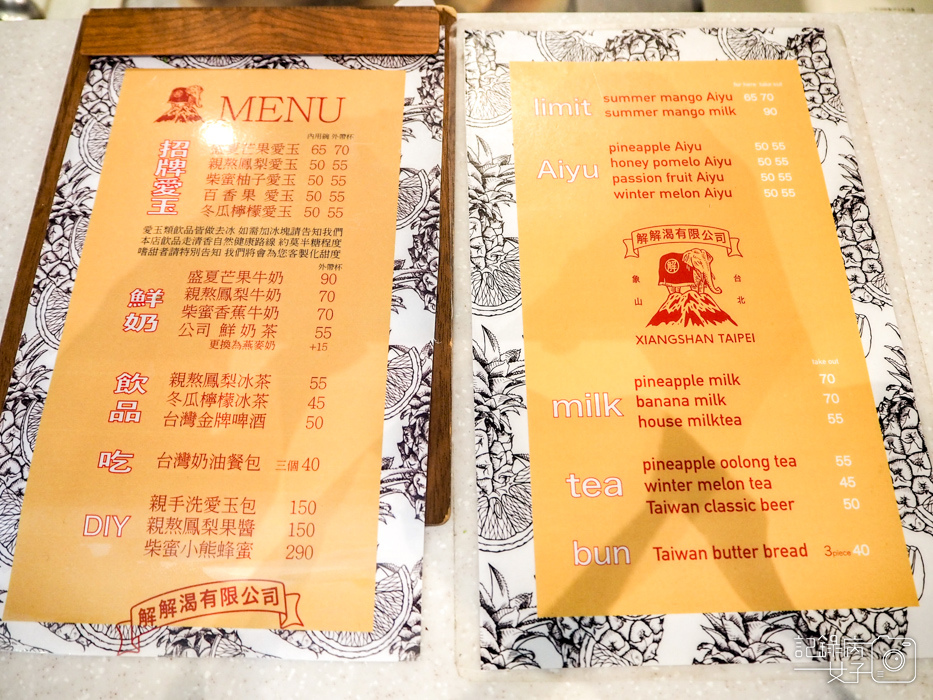 MENU
招牌愛玉
內用碗 外帶杯
夏芒果愛玉 65 70
親熬鳳梨愛玉 50 55
柴蜜柚子愛玉 50 55
百香果 愛玉 50 55
冬瓜檸檬愛玉 50 55
愛玉類飲品皆做去冰 如需加冰塊請告知我們
本店飲品走清香自然健康路線 約莫半糖程度
嗜甜者請特別告知 我們將會為您客製化甜度
外帶杯
鮮奶
盛夏芒果牛奶 90
親熬鳳梨牛奶 70
柴蜜香蕉牛奶 70
公司 鮮奶茶 55
更換為燕麥奶 +15
飲品
親熬鳳梨冰茶 55
冬瓜檸檬冰茶 45
台灣金牌啤酒 50
吃 台灣奶油餐包 三個 40
DIY
親手洗愛玉包 150
親熬鳳梨果醬 150
柴蜜小熊蜂蜜 290
解解渴有限公司
limit
summer mango Aiyu 65 70
summer mango milk 90
Aiyu
pineapple Aiyu 50 55
honey pomelo Aiyu 50 55
passion fruit Aiyu 50 55
winter melon Aiyu 50 55
解解渴有限公司
象山 解 台北
XIANGSHAN TAIPEI
take out
milk
pineapple milk 70
banana milk 70
house milktea 55
tea
pineapple oolong tea 55
winter melon tea 45
Taiwan classic beer 50
bun Taiwan butter bread 3piece 40